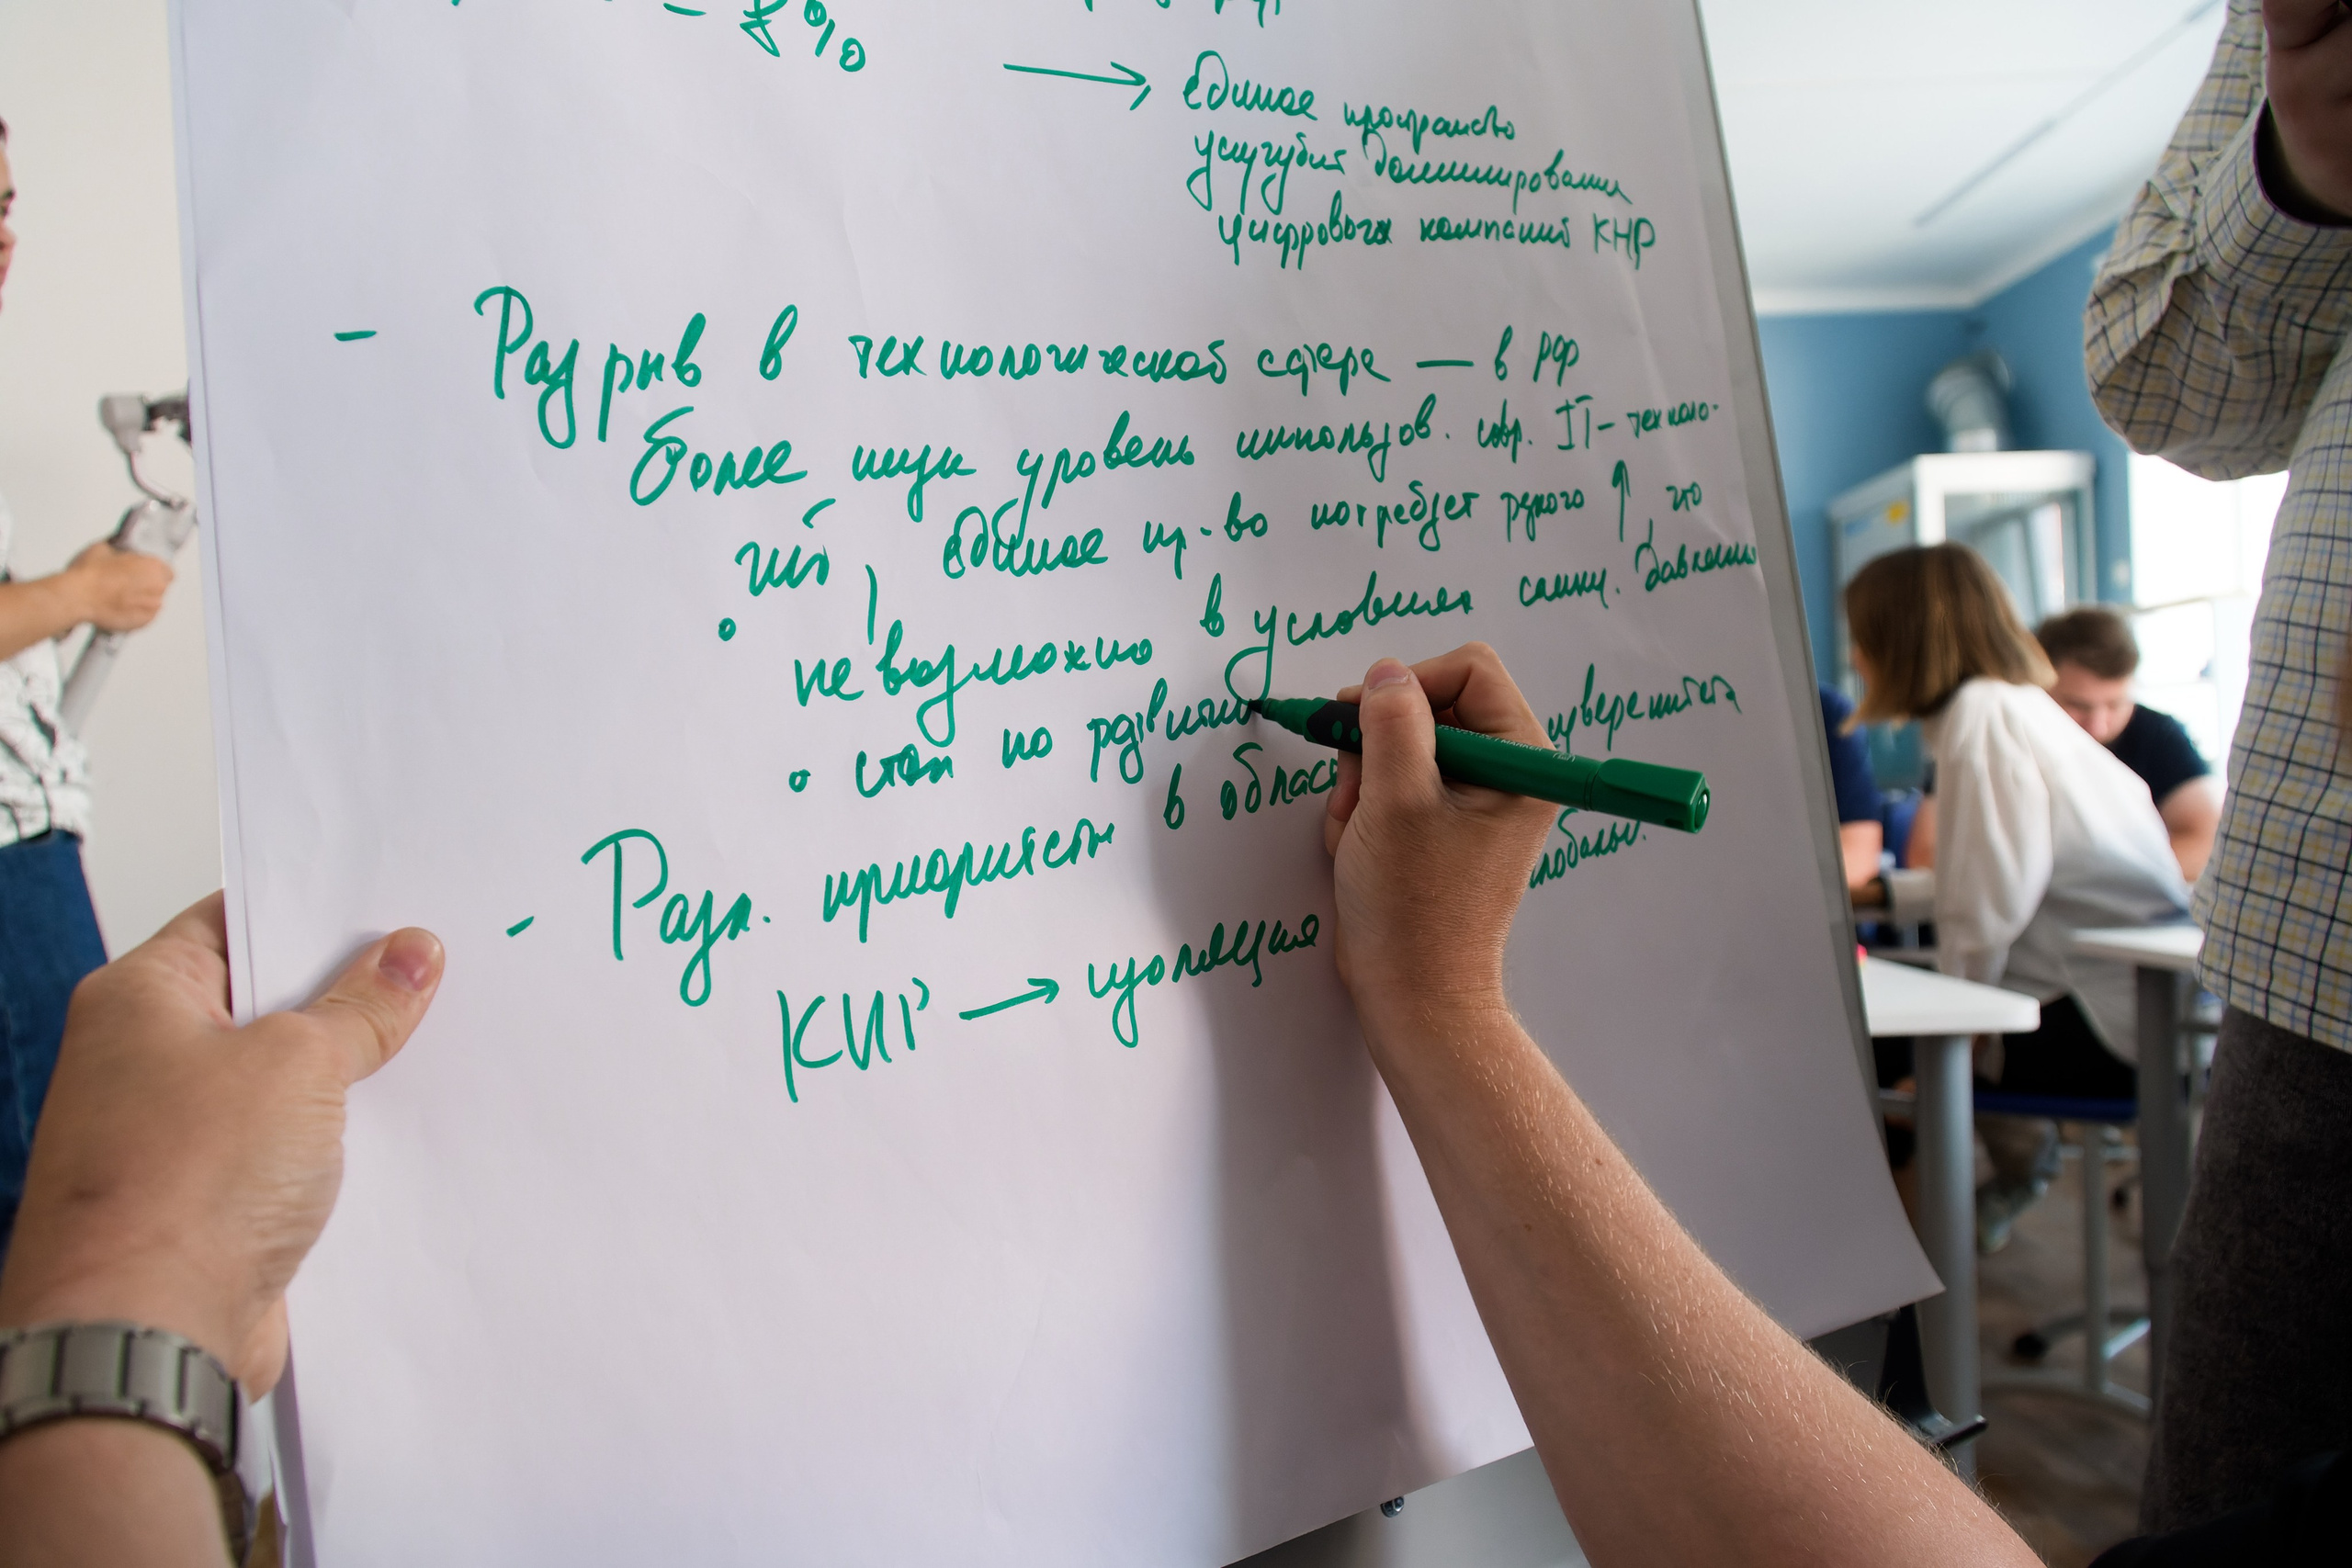 – %
→ единое пространство
усугубит доминирование
цифровых компаний КНР
– Разрыв в технологической сфере — в РФ
более низк уровень использов. совр. IT-техноло-
гий, единое пр-во потребует резкого ↑, что
невозможно в условиях санкц. давления
• стоп по развитию
– Разл. приоритеты в област суверенитета
КНР → изоляция глобальн.